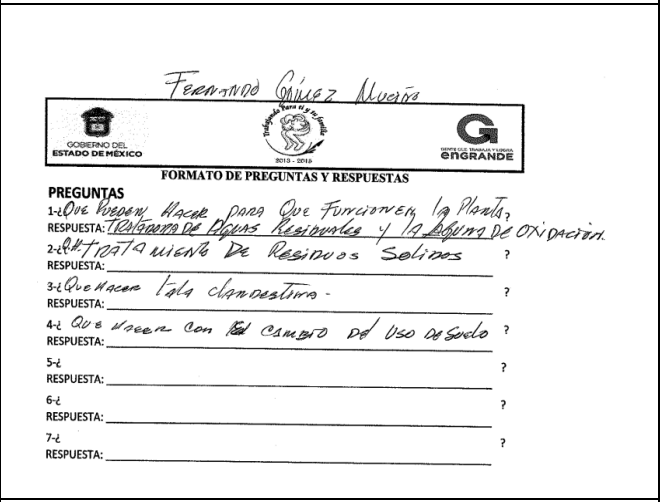 FERNANDO GÓMEZ MUCIÑO
GOBIERNO DEL
ESTADO DE MÉXICO
Trabajando Para ti y tu familia
2013 - 2015
GENTE QUE TRABAJA Y LOGRA
enGRANDE
FORMATO DE PREGUNTAS Y RESPUESTAS
PREGUNTAS
1-¿QUE PUEDEN HACER PARA QUE FUNCIONEN la PlANTA?
RESPUESTA: TRATADORA DE AGUAS RESIDUALES Y lA lAGUNA DE OXIDACION.
2-¿ TRATAMIENTO DE RESIDUOS SOLIDOS ?
RESPUESTA:
3-¿QUE HACER Tala clANDESTINA - ?
RESPUESTA:
4-¿ QUE HACER CON El CAMBIO DEl USO DE SUElO ?
RESPUESTA:
5-¿ ?
RESPUESTA:
6-¿ ?
RESPUESTA:
7-¿ ?
RESPUESTA: